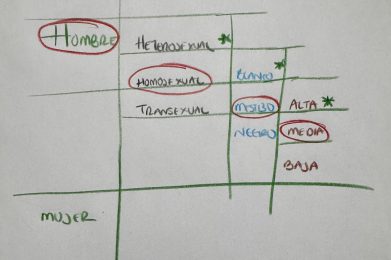 HOMBRE
HETEROSEXUAL *
HOMOSEXUAL BLANCO *
TRANSEXUAL MESTIZO ALTA *
NEGRO MEDIA
BAJA
MUJER